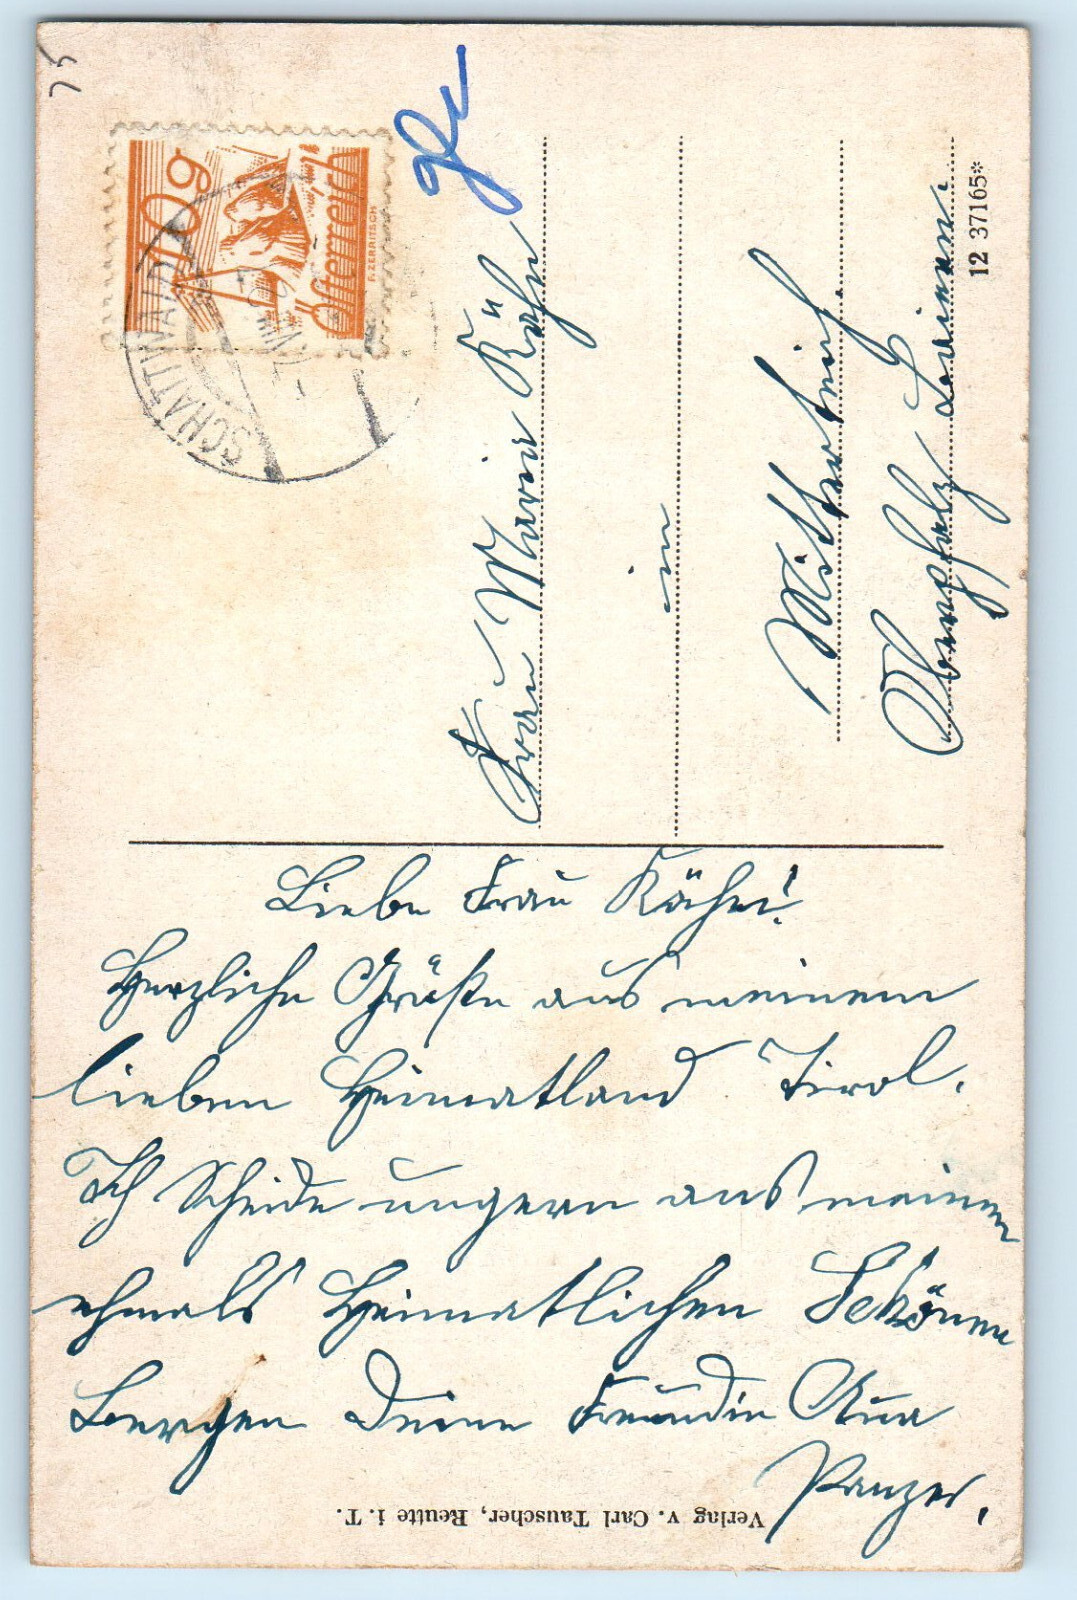 75
10g
Österreich
F. ZERRITSCH
SCHATTWALD
VIII
Frau Maria Köhn
in
Mitterteich
Oberpfalz Baiern.
12 37165*
Liebe Frau Köhn!
Herzliche Grüße aus meinem
lieben Heimatland Tirol.
Ich Scheide ungern aus meinen
ehmals Heimatlichen Schönen
Bergen Deine Freundin
Panzer.
Verlag v. Carl Tauscher, Reutte i. T.